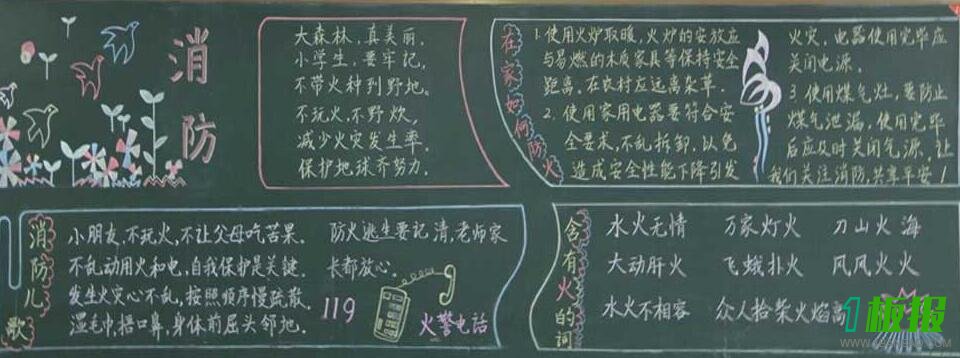 消防
大森林，真美丽，
小学生，要牢记，
不带火种到野地。
不玩火，不野炊，
减少火灾发生率，
保护地球齐努力。
在家如何防火
1.使用火炉取暖，火炉的安放应
与易燃的木质家具等保持安全
距离，在农村应远离杂草．
2.使用家用电器要符合安
全要求，不乱拆卸，以免
造成安全性能下降引发
火灾，电器使用完毕应
关闭电源．
3.使用煤气灶，要防止
煤气泄漏，使用完毕
后应及时关闭气源，让
我们关注消防，共享平安！
消防儿歌
小朋友，不玩火，不让父母吃苦果．
不乱动用火和电，自我保护是关键．
发生火灾心不乱，按照顺序慢疏散．
湿毛巾，捂口鼻，身体前屈头邻地．
防火逃生要记清，老师家
长都放心．
119
火警电话
含有火的词
水火无情 万家灯火 刀山火海
大动肝火 飞蛾扑火 风风火火
水火不相容 众人拾柴火焰高
1板报